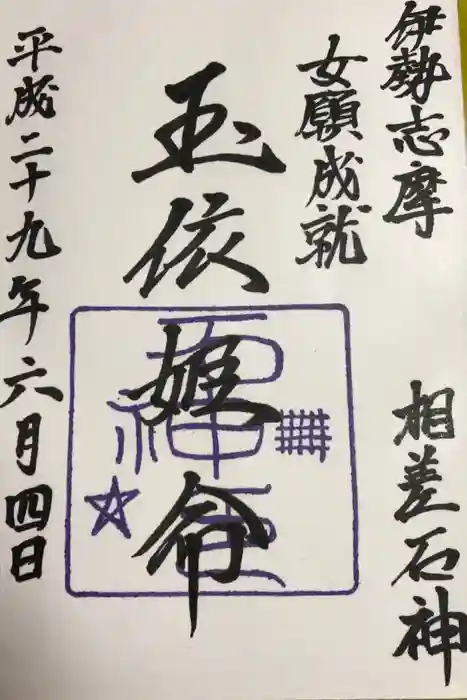 伊勢志摩
相差石神
女願成就
玉依姫命
平成二十九年六月四日